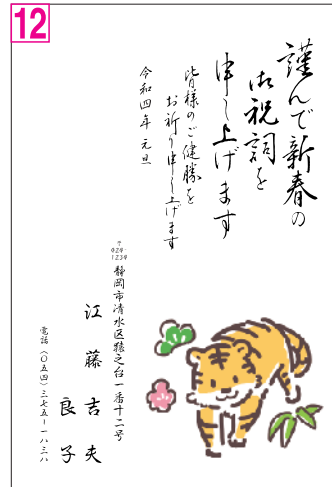 12
謹んで新春の
御祝詞を
申し上げます
皆様のご健勝を
お祈り申し上げます
令和四年 元旦
〒
424-
1234
静岡市清水区猿之台一番十二号
江藤吉夫
良子
電話(〇五四)三七五ー一八三八